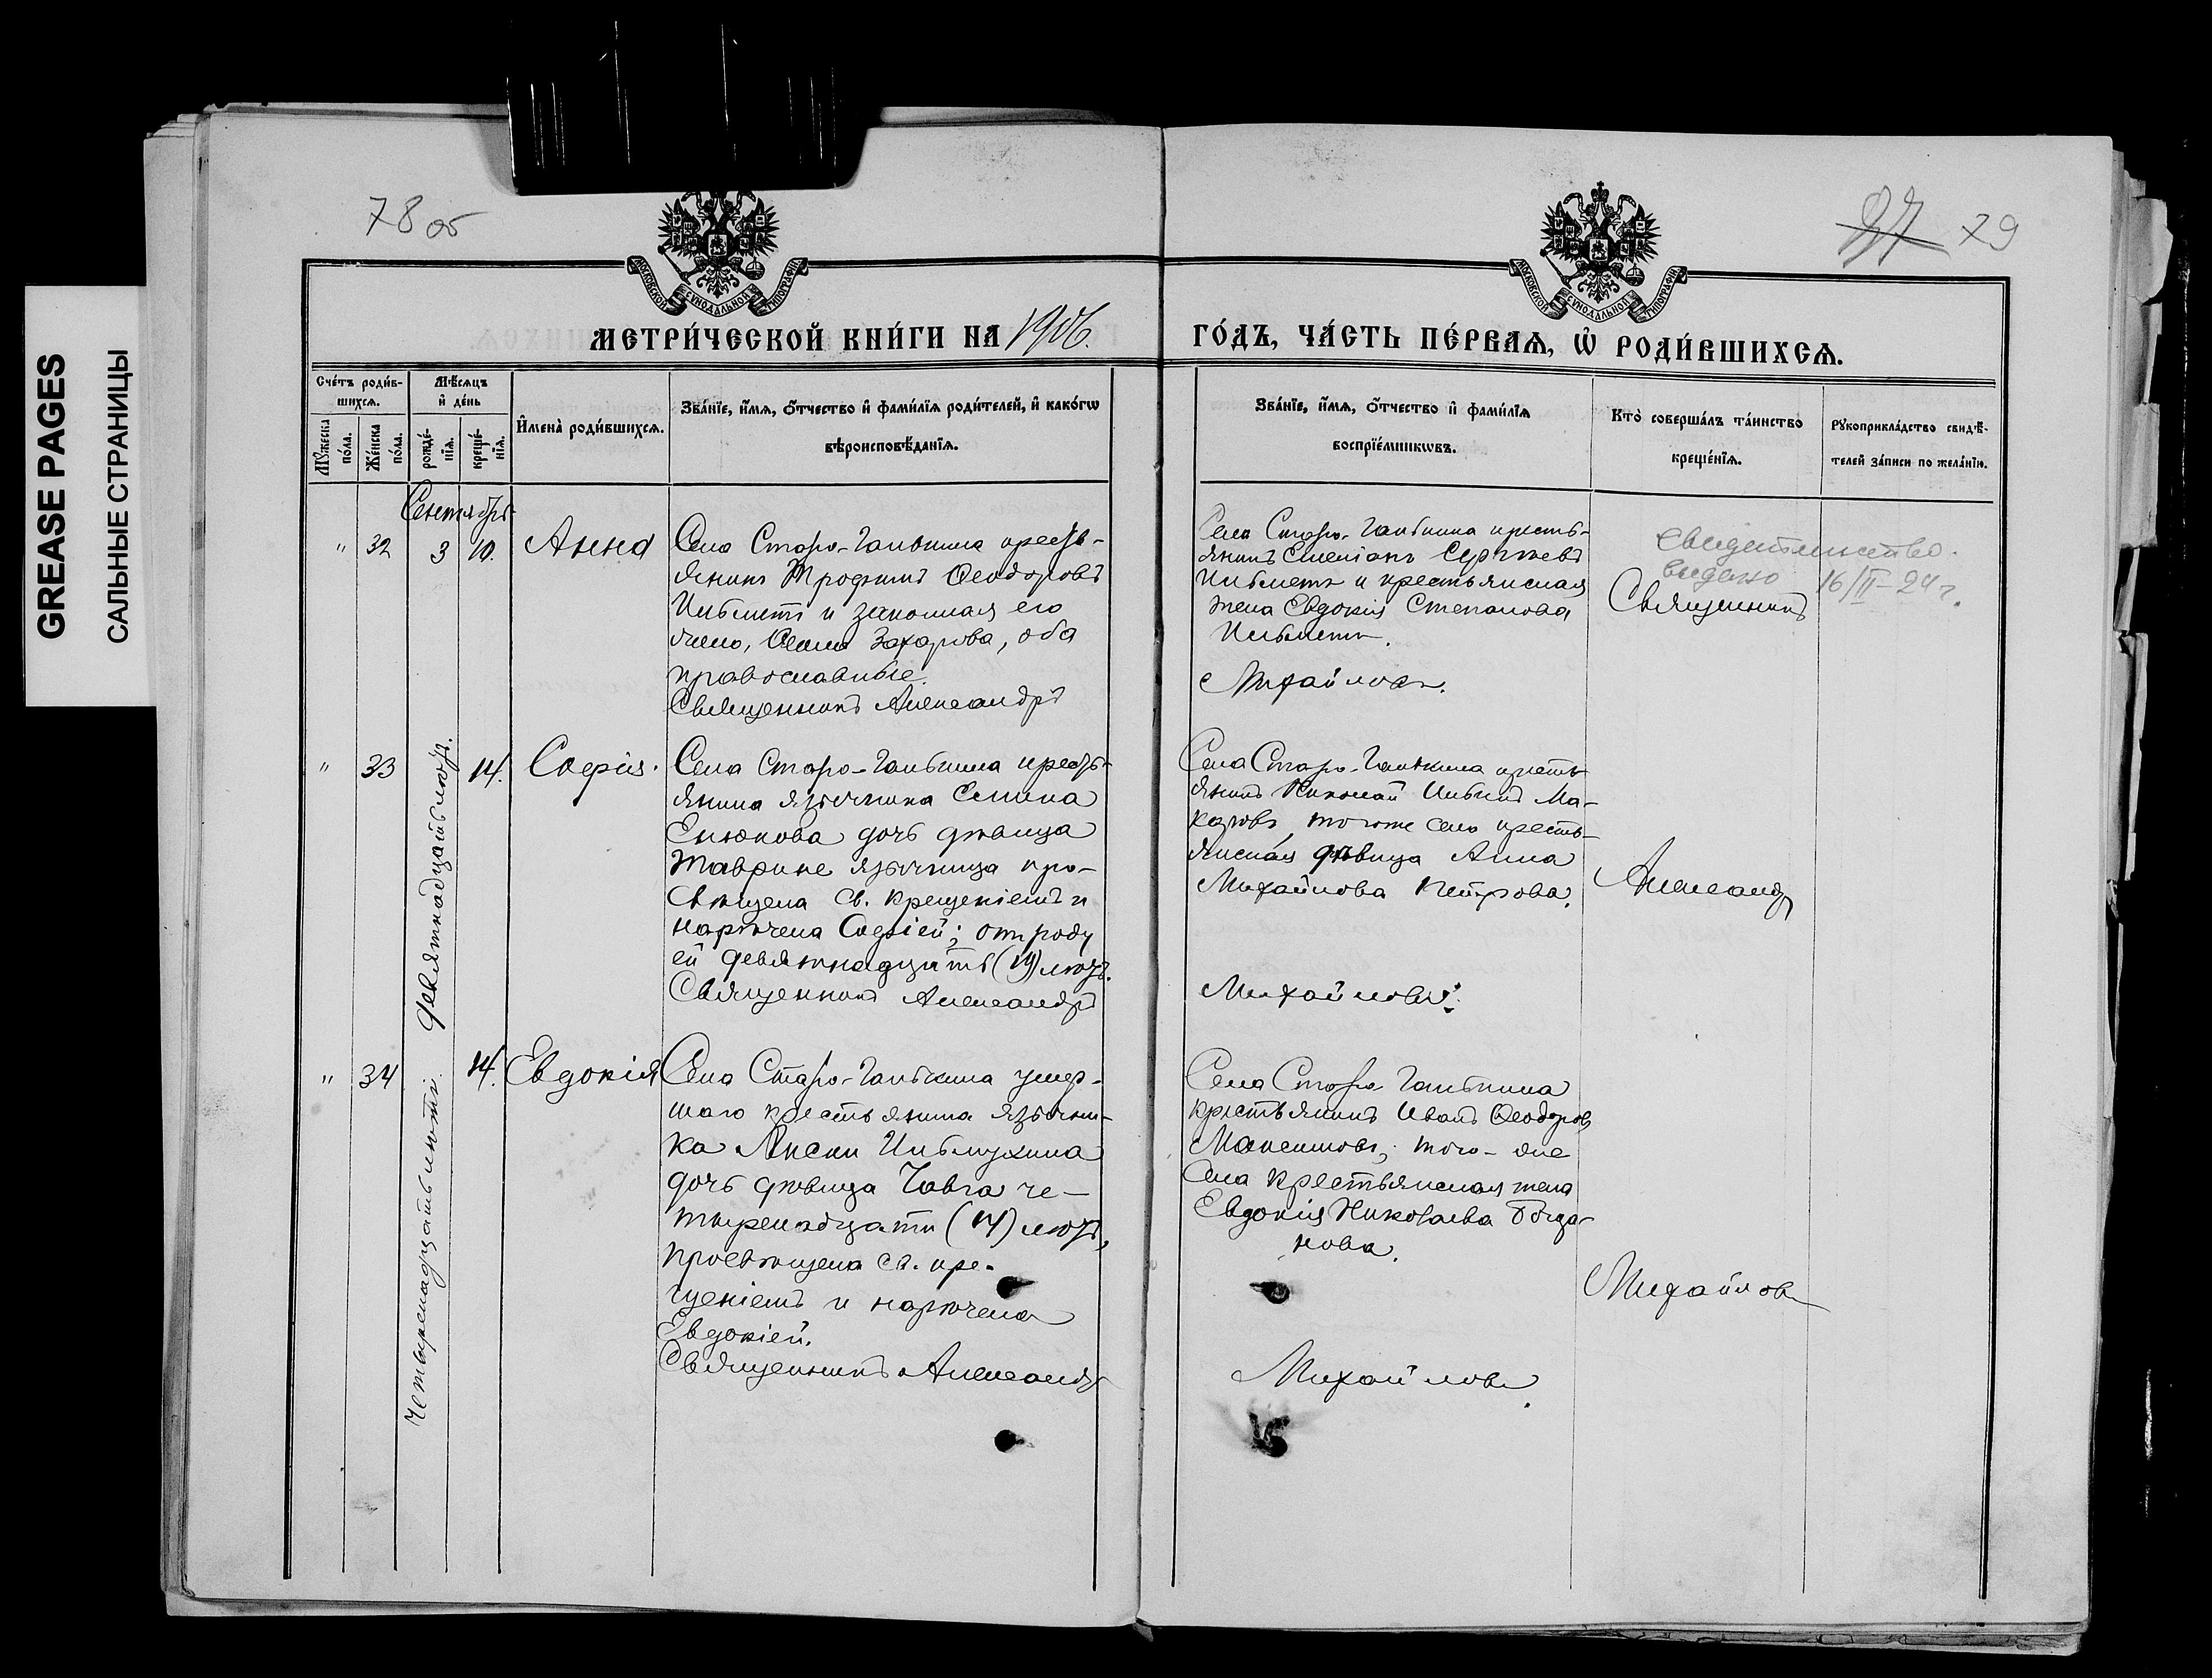 GREASE PAGES
САЛЬНЫЕ СТРАНИЦЫ
78 об
27 79
МОСКОВСКОЙ СУНОДАЛЬНОЙ ТИПОГРАФІИ
МОСКОВСКОЙ СУНОДАЛЬНОЙ ТИПОГРАФІИ
МЕТРИ́ЧЕСКОЙ КНИ́ГИ НА 1906.
ГО́ДЪ, ЧА́СТЬ ПЕ́РВАѦ, Ѡ҆ РОДИ́ВШИХСѦ.
Сче́тъ роди́в-
шихся.
Мѣ́сяцъ
и҆ де́нь
Мꙋ́жеска по́ла.
Же́нска по́ла.
рожде́-
нїя.
креще́-
нїя.
И҆мена̀ роди́вшихся.
Зва́нїе, и҆́мя, ѻ҆́тчество, и҆ фами́лїя роди́телей, и҆ како́гѡ
вѣроисповѣ́данїя.
Зва́нїе, и҆́мя, ѻ҆́тчество и҆ фами́лїя
воспрїе́мникѡвъ.
Кто̀ соверша́лъ та́инство
креще́нїя.
Рꙋкоприкла́дство свидѣ́-
телей за́писи по жела́нїю.
Сентябрь
" 32 3 10. Анна
Села Старо-Ганькина кресть-
янинъ Трофимъ Ѳеодоровъ
и законная его
жена, Захарова, оба
православные.
Священникъ Александръ
Села Старо-Ганькина кресть-
янинъ
и крестьянская
жена Евдокія Степанова
Михайловъ.
Свидетельство
выдано 16/II-24 г.
Священникъ
" 33 девятнадцать лѣтъ. 14. Софія.
Села Старо-Ганькина кресть-
янина язычника Семена
Енюкова дочь дѣвица
Тавриме язычница про-
свѣщена Св. крещеніемъ и
наречена Софіей; отъ роду
ей девятнадцать (19) лѣтъ.
Священникъ Александръ
Села Старо-Ганькина кресть-
янинъ Николай Ма-
каровъ, того же села кресть-
янская дѣвица Анна
Михайлова Петрова.
Михайловъ.
Александръ
" 34 четыренадцать лѣтъ. 14. Евдокія
Села Старо-Ганькина умер-
шаго крестьянина язычни-
ка
дочь дѣвица че-
тыренадцати (14) лѣтъ,
просвѣщена св. кре-
щеніемъ и наречена
Евдокіей.
Священникъ Александръ
Села Старо-Ганькина
крестьянинъ Иванъ Ѳеодоровъ
Максимовъ, того-же
села крестьянская жена
Евдокія Николаева Богда-
нова.
Михайловъ.
Михайловъ